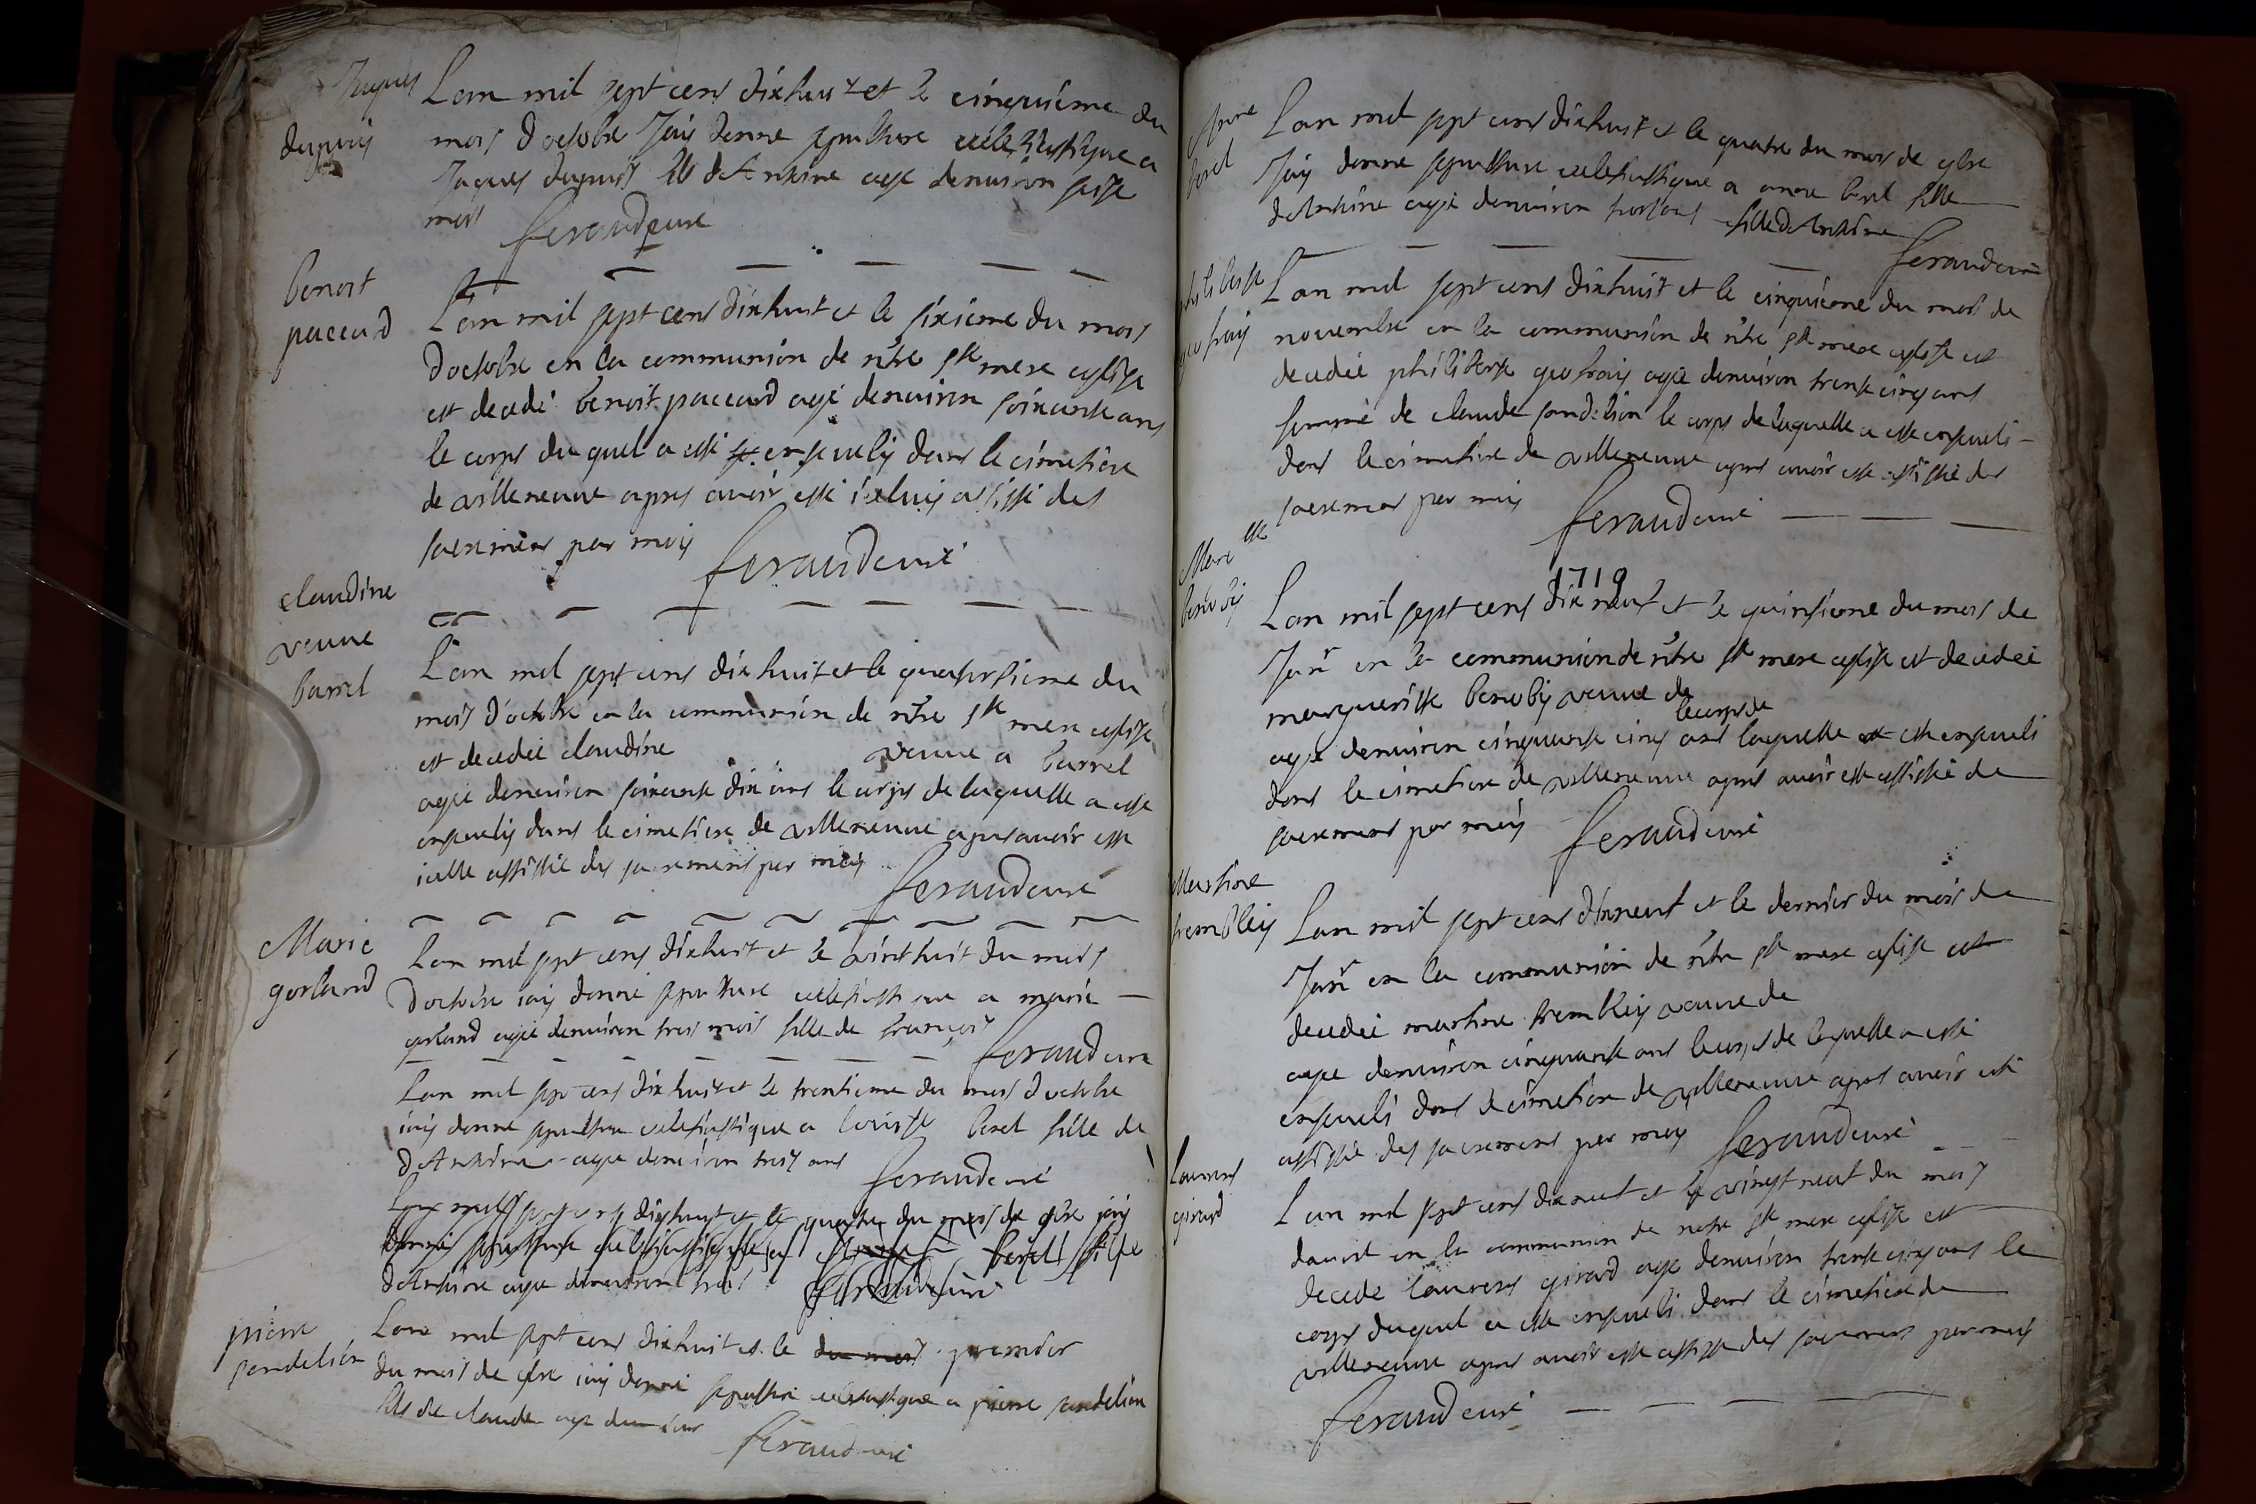 Jaques
dupuis
Lan mil sept cens dixhuit et le cinquiéme du
mois doctobre Jay donne sepulture ecclesiastique a
Jaques dupuis fils dAntoine agé denuiron seise
mois
feraud curé
benoit
paccard
Lan mil sept cens dixhuit et le sixieme du mois
doctobre en la communion de nre ste mere eglise
est decedé benoit paccard agé denuiron soixante ans
le corps du quel a esté enseuely dans le cimetiere
de villeneuue apres auoir esté iceluy assisté des
sacremens par moy
feraud curé
claudine
veuue
barrel
Lan mil sept cens dixhuit et le quatorsieme du
mois d'octobre en la communion de nre ste mere eglise
est decedée claudine veuue a barrel
agée denuiron soixante dix ans le corps de laquelle a esté
enseuely dans le cimetiere de villeneuue apres auoir esté
icelle assistée des sacremens par moy
feraud curé
Marie
gorland
Lan mil sept cens dixhuit et le vint huit du mois
doctobre iay donné sepulture ecclesiastique a marie
gorland agée denuiron trois mois fille de francois
feraud curé
Lan mil sept cens dixhuit et le trentieme du mois doctobre
iay donne sepulture ecclesiastique a louise berel fille de
dAntoine agée denuiron trois ans
feraud curé
Lan mil sept cens dixhuit et le quatre du mois de gbre iay
donné sepulture ecclesiastique a berel fille
dAntoine agée denuiron trois
feraud curé
pierre
sandelion
Lan mil sept cens dixhuit et le du mois premier
du mois de gbre iay donné sepulture ecclesiastique a pierre sandelion
fils de claude agé
feraud curé
Anne
berel
Lan mil sept cens dixhuit et le quatre du mois de gbre
Jay donne sepulture ecclesiastique a anne berel fille
dAntoine agée denuiron fille dAntoine
feraud curé
Lan mil sept cens dixhuit et le cinquieme du mois de
nouembre en la communion de nre ste mere eglise est
decedée philiberte agée denuiron trente cinq ans
femme de claude sandelion le corps de laquelle a esté enseueli
dans le cimetiere de villeneuue apres auoir esté assistée des
sacremens par moy
feraud curé
Margte
benoby
1719
Lan mil sept cens dix neuf et le quinsieme du mois de
Janr en la communion de nre ste mere eglise est decedée
marguerite benoby veuue de
le corps de
agée denuiron cinquante cinq ans laquelle esté enseueli
dans le cimetiere de villeneuue apres auoir esté assistée de
sacremens par moy
feraud curé
Martine
trembley
Lan mil sept cens dixneuf et le dernier du mois de
Janr en la communion de nre ste mere eglise est
decedée martine trembley veuue de
agée denuiron cinquante ans le corps de laquelle a esté
enseueli dans le cimetiere de villeneuue apres auoir esté
assistée des sacremens par moy
feraud curé
Laurens
girard
Lan mil sept cens dixneuf et le vingt neuf du mois
daoust en la communion de notre ste mere eglise est
decedé laurens girard agé denuiron trente cinq ans le
corps duquel a esté enseueli dans le cimetiere de
villeneuue apres auoir esté assisté des sacremens par moy
feraud curé